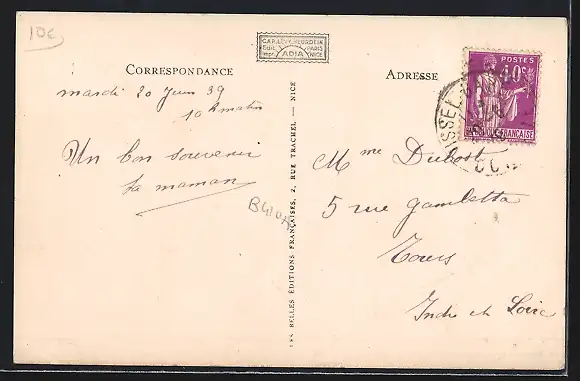 10€
CAP. LEVY NEURDEIN
Edit. PARIS
Impr. ADIA NICE
CORRESPONDANCE
mardi 20 Juin 39
10h matin
Un bon souvenir
ta maman
LES BELLES ÉDITIONS FRANÇAISES, 2, RUE TRACHEL, — NICE
ADRESSE
POSTES
40c
FRANÇAISE
Mme Dubost
5 rue Gambetta
Tours
Indre et Loire